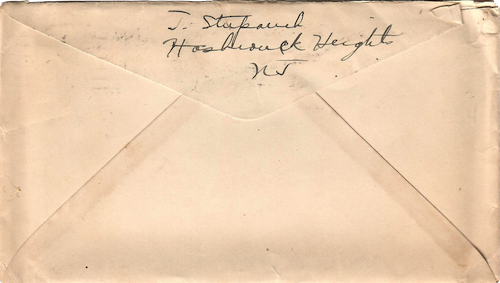 J. Stepanek
Hasbrouck Heights
NJ